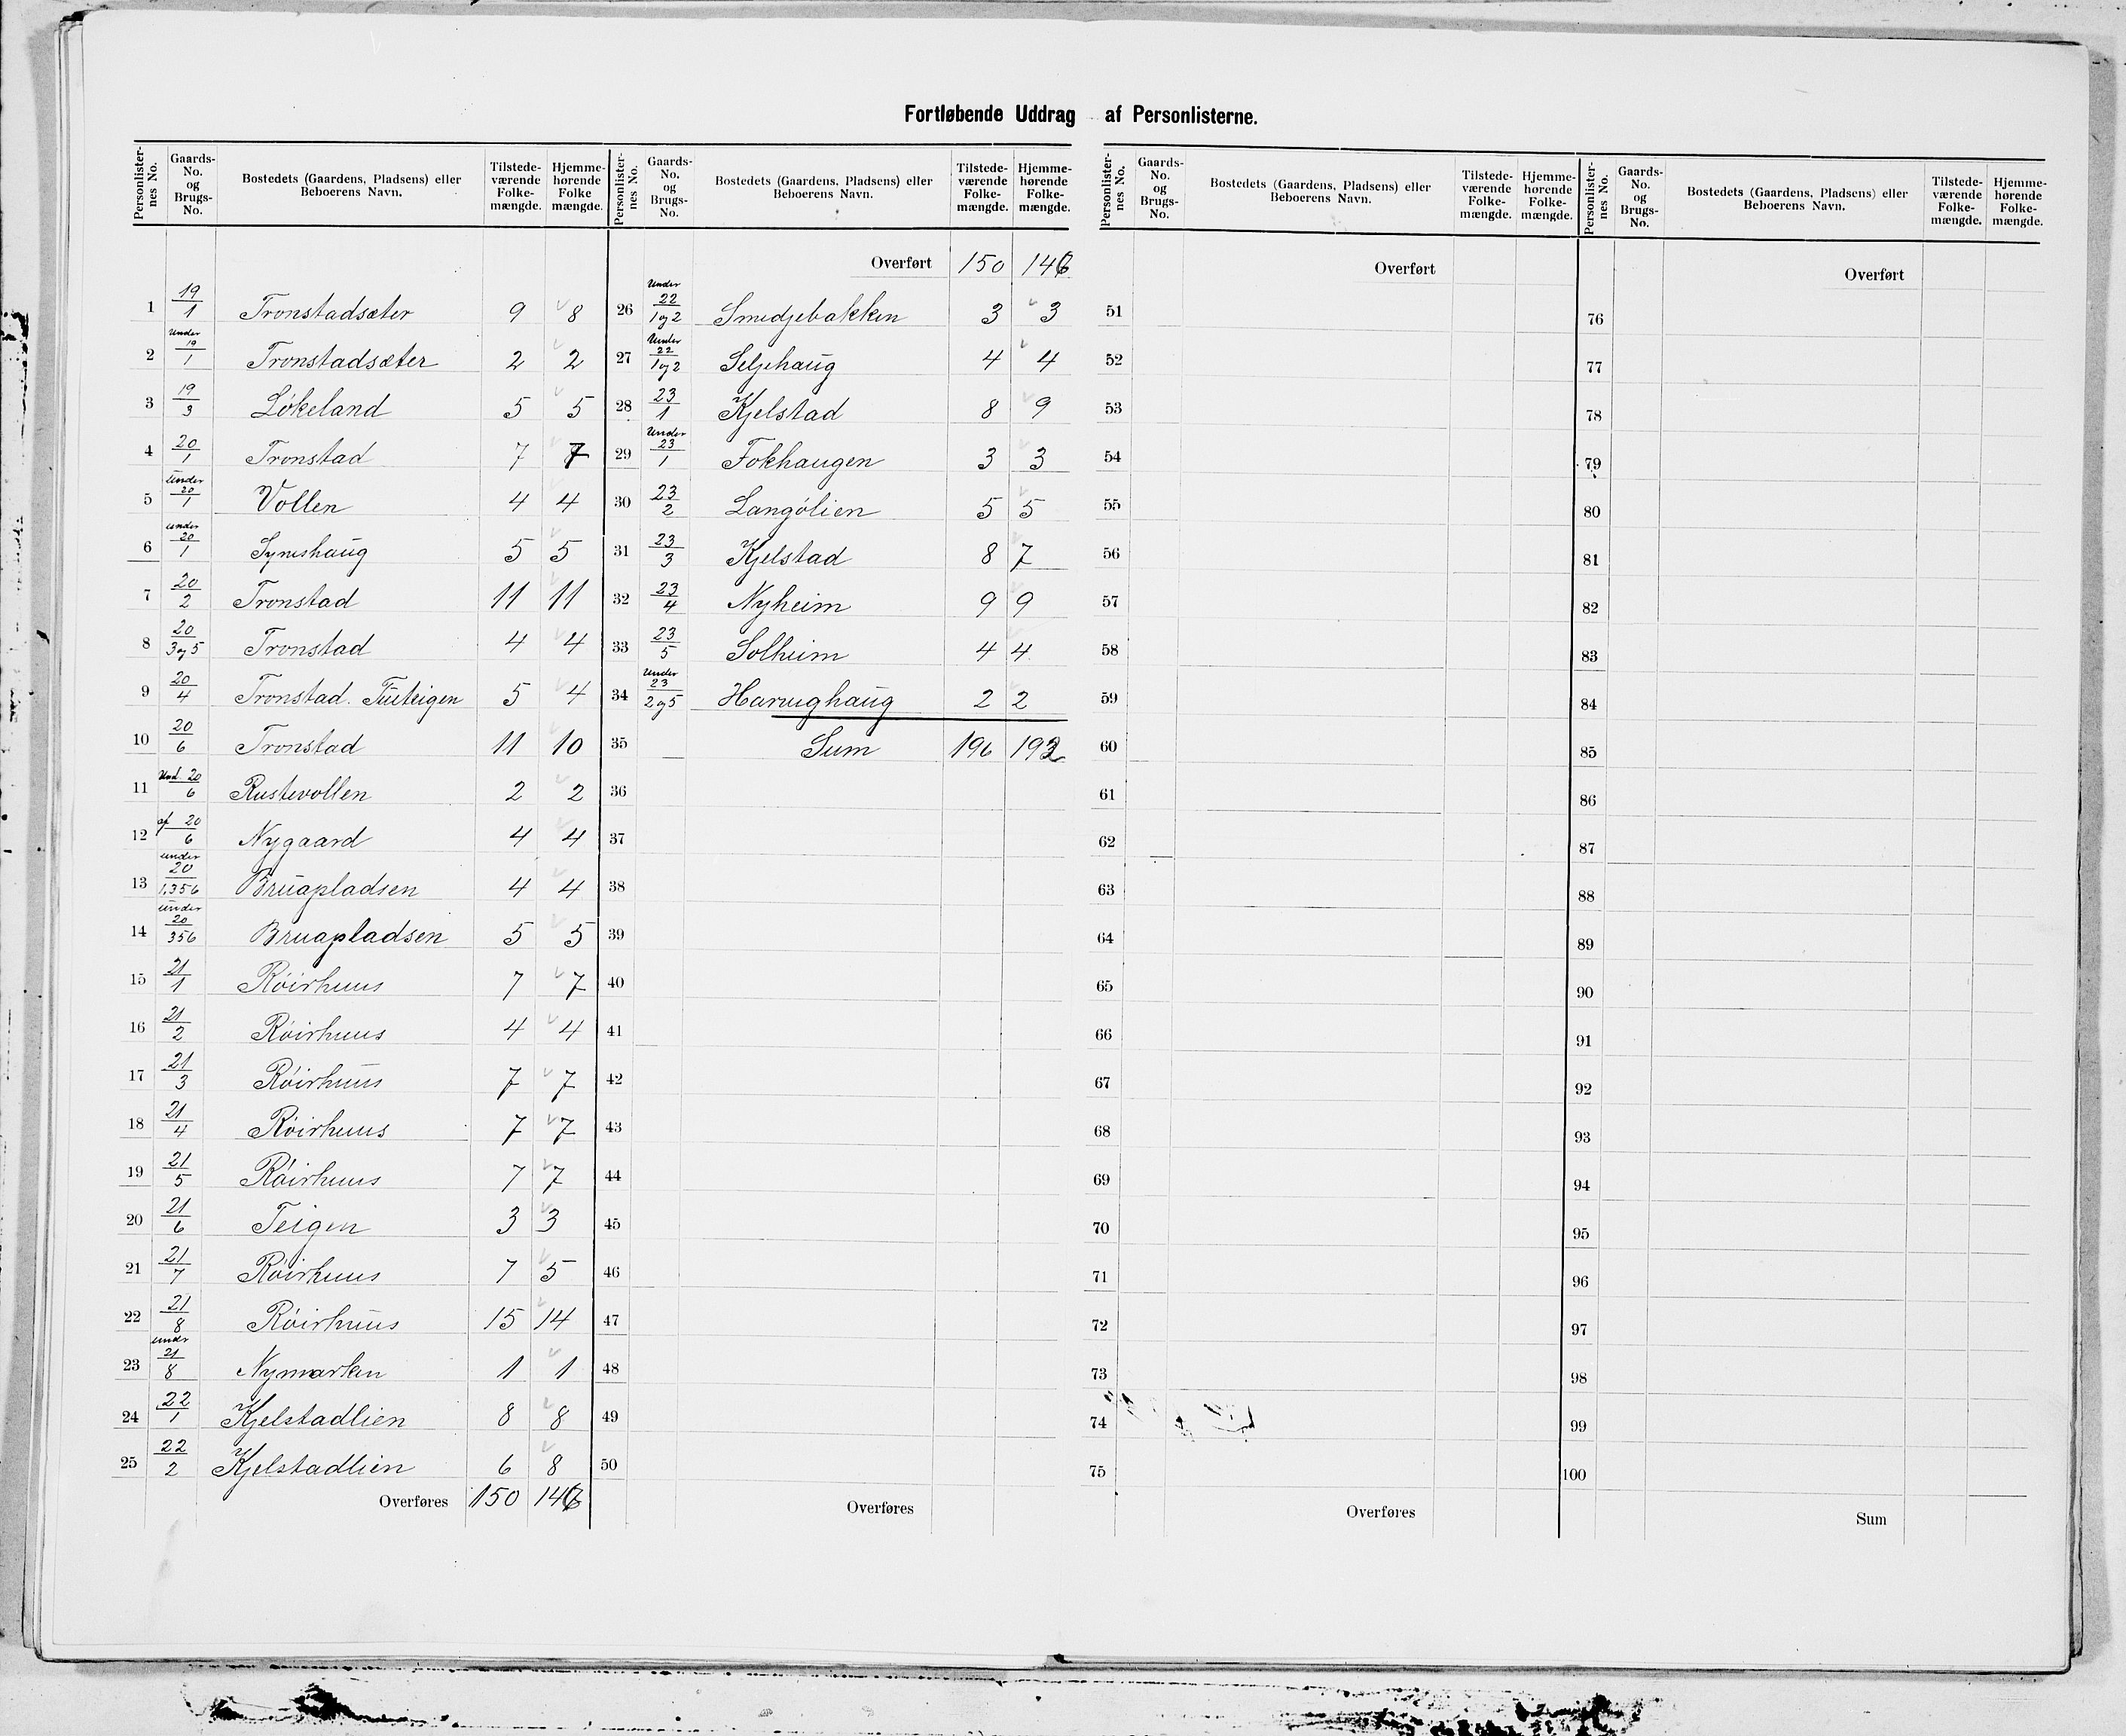 Fortløbende Uddrag af Personlisterne.
Personlister-nes No. | Gaards-No. og Brugs-No. | Bostedets (Gaardens, Pladsens) eller Beboerens Navn. | Tilstede-værende Folke-mængde. | Hjemme-hørende Folke mængde.
1 | 19/1 | Tronstadsæter | 9 | 8
2 | Under 19/1 | Tronstadsæter | 2 | 2
3 | 19/3 | Løkeland | 5 | 5
4 | 20/1 | Tronstad | 7 | 7
5 | Under 20/1 | Vollen | 4 | 4
6 | under 20/1 | Syneshaug | 5 | 5
7 | 20/2 | Tronstad | 11 | 11
8 | 20/3 og 5 | Tronstad | 4 | 4
9 | 20/4 | Tronstad. Tuteigen | 5 | 4
10 | 20/6 | Tronstad | 11 | 10
11 | Und 20/6 | Rustevollen | 2 | 2
12 | af 20/6 | Nygaard | 4 | 4
13 | under 20/1.356 | Bruapladsen | 4 | 4
14 | under 20/356 | Bruapladsen | 5 | 5
15 | 21/1 | Røirhuus | 7 | 7
16 | 21/2 | Røirhuus | 4 | 4
17 | 21/3 | Røirhuus | 7 | 7
18 | 21/4 | Røirhuus | 7 | 7
19 | 21/5 | Røirhuus | 7 | 7
20 | 21/6 | Teigen | 3 | 3
21 | 21/7 | Røirhuus | 7 | 5
22 | 21/8 | Røirhuus | 15 | 14
23 | under 21/8 | Nymarken | 1 | 1
24 | 22/1 | Kjelstadlien | 8 | 8
25 | 22/2 | Kjelstadlien | 6 | 8
Overføres | 150 | 146
Personlister-nes No. | Gaards-No. og Brugs-No. | Bostedets (Gaardens, Pladsens) eller Beboerens Navn. | Tilstede-værende Folke-mængde. | Hjemme-hørende Folke-mængde.
Overført | 150 | 146
26 | Under 22/1 og 2 | Smedjebakken | 3 | 3
27 | Under 22/1 og 2 | Seljehaug | 4 | 4
28 | 23/1 | Kjelstad | 8 | 9
29 | Under 23/1 | Fokhaugen | 3 | 3
30 | 23/2 | Langølien | 5 | 5
31 | 23/3 | Kjelstad | 8 | 7
32 | 23/4 | Nyheim | 9 | 9
33 | 23/5 | Solheim | 4 | 4
34 | Under 23/2 og 5 | Haraughaug | 2 | 2
35 | Sum | 196 | 192
36
37
38
39
40
41
42
43
44
45
46
47
48
49
50
Overføres
Personlister-nes No. | Gaards-No. og Brugs-No. | Bostedets (Gaardens, Pladsens) eller Beboerens Navn. | Tilstede-værende Folke-mængde. | Hjemme-hørende Folke-mængde.
Overført
51
52
53
54
55
56
57
58
59
60
61
62
63
64
65
66
67
68
69
70
71
72
73
74
75
Overføres
Personlister-nes No. | Gaards-No. og Brugs-No. | Bostedets (Gaardens, Pladsens) eller Beboerens Navn. | Tilstede-værende Folke-mængde. | Hjemme-hørende Folke-mængde.
Overført
76
77
78
79
80
81
82
83
84
85
86
87
88
89
90
91
92
93
94
95
96
97
98
99
100
Sum